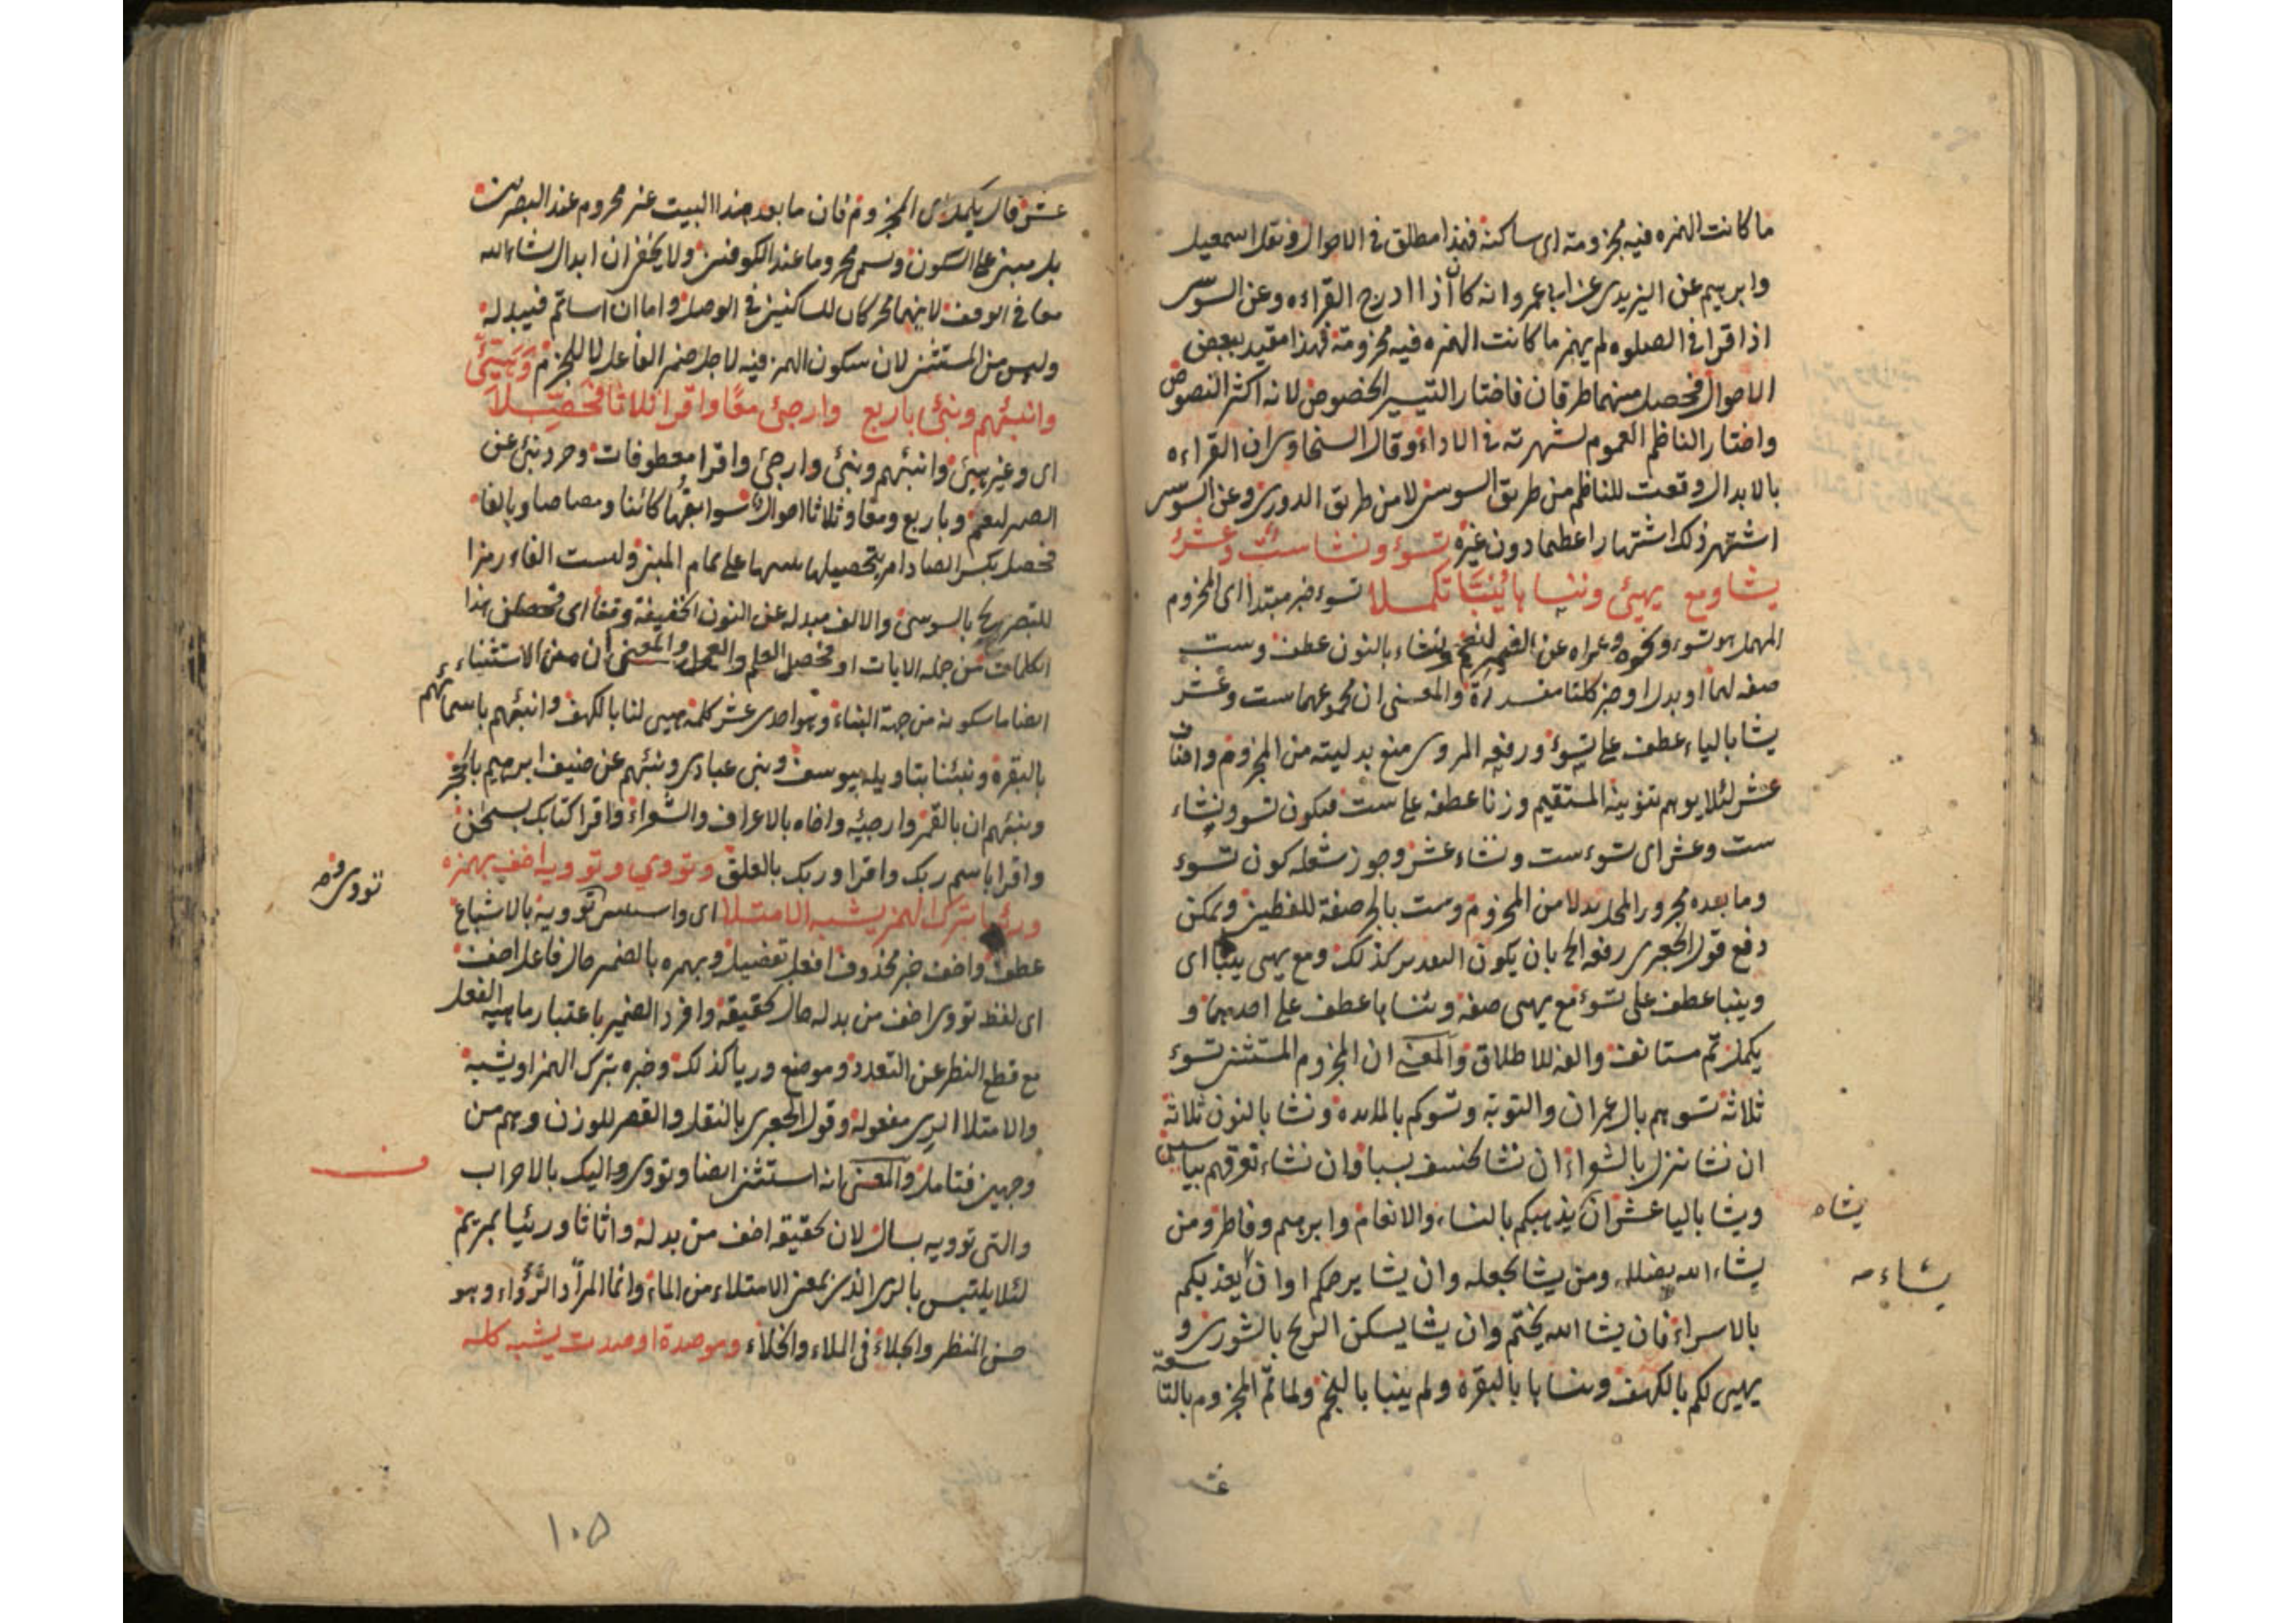 ما كانت الهمزه فيه مجزومة اى ساكنة فهذا مطلق فى الاحوال ونقل اسمعيل
وابرهيم عن اليزيدى عن ابى عمرو انه كان اذا ادرج القراءه وعن السوسى
اذا قرا فى الصلوه لم يهمز ما كانت الهمزه فيه مجزومة فهذا مقيد ببعض
الاحوال فحصل منهما طرقان فاختار التيسير الخصوص لانه اكثر النصوص
واختار الناظم العموم لشهرته فى الاداء وقال السخاوى ان القراءه
بالابدال وقعت للناظم من طريق السوسى لا من طريق الدورى وعن السوسى
اشتهر ذلك اشتهارا عظيما دون غيره تسوء ونشا ست وعشر
يشا ومع يهيئ وننساها ينبأ تكملا تسوء خبر مبتدا اى المجزوم
المهمل هو تسوء ونحوه وعراه عن الضمير ونشاء بالنون عطف وست
صفه لهما او بدل او خبر كلتا مقدرة والمعنى ان مجموعهما ست وعشر
يشا بالياء عطف على تسوء ورفعه المروى منع بدليته من المجزوم واضاف
عشر لئلا يوهم تنوينه المستقيم وزنا عطفه على ست فيكون تسو ونشاء
ست وعشر اى تسوء ست ونشاء عشر وجوز شعله كون تسوء
وما بعده مجرور المحل بدلا من المجزوم وست بالجر صفة للفظين ويمكن
دفع قول الجعبرى رفعه الخ بان يكون التقدير كذلك ومع يهيى ينبأ اى
وينبا عطف على تسوء مع يهيى صفه وننساها عطف على احدهما و
يكمل تم مستانف والفه للاطلاق والمعنى ان المجزوم المستثنى تسوء
ثلاثة تسوهم بال عمران والتوبة وتسوكم بالمايده ونشا بالنون ثلاثة
ان نشا ننزل بالشعراء ان نشا نخسف بسبا وان نشاء نغرقهم بياسين
ويشا باليا عشر ان يشا يذهبكم بالنساء والانعام وابرهيم وفاطر ومن
يشاه
يشاء الله يضلله ومن يشا يجعله وان يشا يرحمكم او ان يشا يعذبكم
يشاء
بالاسراء فان يشا الله يختم وان يشا يسكن الريح بالشورى و
يهيى لكم بالكهف وننساها بالبقرة ولم ينبا بالنجم ولما تم المجزوم بالتسعة
عشر
عشر قال يكمل اى المجزوم فان ما بعد هذا البيت غير مجزوم عند البصريين
بل مبنى على السكون وسمى مجزوما عند الكوفيين ولا يخفى ان ابدال يشاء الله
معا فى الوقف لانهما محركان للساكنين فى الوصل واما ان اساتم فيبدله
وليس من المستثنى لان سكون الهمز فيه لاجل ضمير الفاعل لا للجزم وهيئ
وانبئهم ونبئ باربع وارجئ معا واقرا ثلاثا فحصلا
اى وغير هيئ وانبئهم ونبئ وارجئ واقرا معطوفات وجرد نبئ عن
الضمير ليعم وباربع ومعا وثلاثا احوال سوابقها كائنا ومصاحبا وبالفا
فحصل بكسر الصاد امر بتحصيلها تنبيها على تمام المبنى وليست الفاء رمزا
للتصريح بالسوسى والالف مبدله عن النون الخفيفة وقفا اى فحصلن هذا
الكلمات من جمله الابات او فحصل العلم والعمل والمعنى ان معنى الاستثناء
ايضا ما سكونه من جهة البناء وهو احدى عشر كلمة هيى لنا بالكهف وانبئهم باسمائهم
بالبقرة ونبئنا بتاويله بيوسف ونبى عبادى ونبئهم عن ضيف ابرهيم بالحجر
ونبئهم ان بالقمر وارجئه واخاه بالاعراف والشعراء واقرا كتابك بسبحن
واقرا باسم ربك واقرا وربك بالعلق وتووى وتوويه اخف بهمزه
تووى
ورئيا بترك الهمز يشبه الامتلا اى واستثنى توويه بالاشباع
عطف واخف خبر محذوف افعل تفضيل وبهمزه بالضمير حال فاعل اخف
اى لفظ تووى اخف من بدله حال تحقيقه وافرد الضمير باعتبار ماهيه الفعل
مع قطع النظر عن التعدد وموضع ورئيا كذلك وخبره بترك الهمز او يشبه
والامتلا الرى مفعوله وقول الجعبرى بالنقل والقصر للوزن وهم من
وجهين فتامل والمعنى انه استثنى ايضا وتووى اليك بالاحزاب
والتى توويه بسال لان تحقيقه اخف من بدله واثاثا ورئيا بمريم
لئلا يلتبس بالرى الذى بمعنى الامتلاء من الماء وانما المراد الرؤاء وهو
حسن المنظر والجلاء فى الملاء والخلاء وموصدة اوصدت يشبه كله
١٠٥